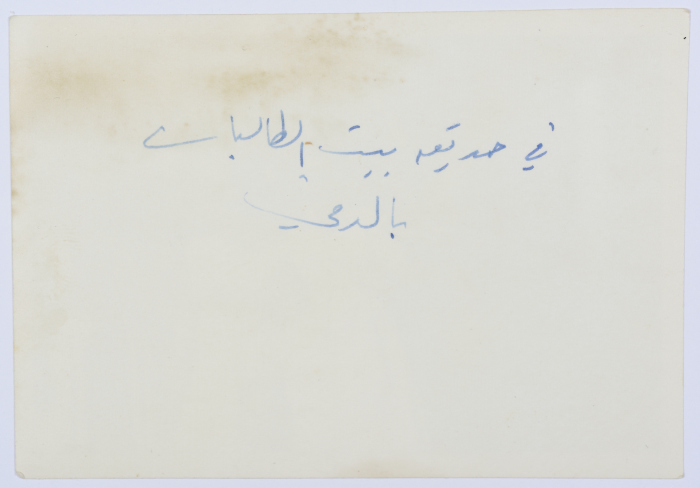 في حديقه بيت الطالبات
بالدقي